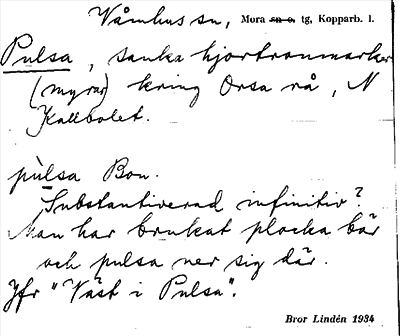 Våmhus sn, Mora sn o. tg, Kopparb. l.
Pulsa, sanka hjortronmarker
(myrar) kring Orsa rå, N
Kallbolet.
pùlsa Bon.
Substantiverad infinitiv?
Man har brukat plocka bär
och pulsa ner sig där.
Jfr "Väst i Pulsa".
Bror Lindén 1934